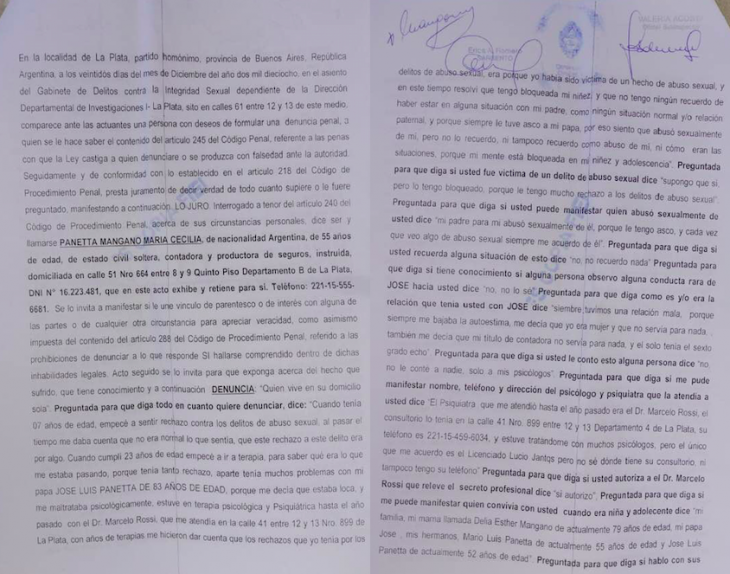 En la localidad de La Plata, partido homónimo, provincia de Buenos Aires, República
Argentina, a los veintidós días del mes de Diciembre del año dos mil dieciocho, en el asiento
del Gabinete de Delitos contra la Integridad Sexual dependiente de la Dirección
Departamental de Investigaciones I- La Plata, sito en calles 61 entre 12 y 13 de este medio,
comparece ante las actuantes una persona con deseos de formular una denuncia penal, a
quien se le hace saber el contenido del articulo 245 del Código Penal, referente a las penas
con que la Ley castiga a quien denunciare o se produzca con falsedad ante la autoridad.
Seguidamente y de conformidad con lo establecido en el artículo 218 del Código de
Procedimiento Penal, presta juramento de decir verdad de todo cuanto supiere o le fuere
preguntado, manifestando a continuación, LO JURO. Interrogado a tenor del articulo 240 del
Código de Procedimiento Penal, acerca de sus circunstancias personales, dice ser y
llamarse PANETTA MANGANO MARIA CECILIA, de nacionalidad Argentina, de 55 años
de edad, de estado civil soltera, contadora y productora de seguros, instruida,
domiciliada en calle 51 Nro 664 entre 8 y 9 Quinto Piso Departamento B de La Plata,
DNI N° 16.223.481, que en este acto exhibe y retiene para si. Teléfono: 221-15-555-
6681. Se lo invita a manifestar si le une vinculo de parentesco o de interés con alguna de
las partes o de cualquier otra circunstancia para apreciar veracidad, como asimismo
impuesta del contenido del articulo 288 del Código de Procedimiento Penal, referido a las
prohibiciones de denunciar a lo que responde SI hallarse comprendido dentro de dichas
inhabilidades legales. Acto seguido se lo invita para que exponga acerca del hecho que
sufrido, que tiene conocimiento y a continuación DENUNCIA: "Quien vive en su domicilio
sola". Preguntada para que diga todo en cuanto quiere denunciar, dice: "Cuando tenia
07 años de edad, empecé a sentir rechazo contra los delitos de abuso sexual, al pasar el
tiempo me daba cuenta que no era normal lo que sentía, que este rechazo a este delito era
por algo. Cuando cumplí 23 años de edad empecé a ir a terapia, para saber qué era lo que
me estaba pasando, porque tenia tanto rechazo, aparte tenia muchos problemas con mi
papa JOSE LUIS PANETTA DE 83 AÑOS DE EDAD, porque me decía que estaba loca, y
me maltrataba psicológicamente, estuve en terapia psicológica y Psiquiátrica hasta el año
pasado con el Dr. Marcelo Rossi, que me atendía en la calle 41 entre 12 y 13 Nro. 899 de
La Plata, con años de terapias me hicieron dar cuenta que los rechazos que yo tenia por los
delitos de abuso sexual, era porque yo había sido víctima de un hecho de abuso sexual, y
en este tiempo resolví que tengo bloqueada mi niñez, y que no tengo ningún recuerdo de
haber estar en alguna situación con mi padre, como ningún situación normal y/o relación
paternal, y porque siempre le tuve asco a mi papa, por eso siento que abusó sexualmente
de mi, pero no lo recuerdo, ni tampoco recuerdo como abuso de mi, ni cómo eran las
situaciones, porque mi mente está bloqueada en mi niñez y adolescencia". Preguntada
para que diga si usted fue víctima de un delito de abuso sexual dice "supongo que si,
pero lo tengo bloqueado, porque le tengo mucho rechazo a los delitos de abuso sexual".
Preguntada para que diga si usted puede manifestar quien abusó sexualmente de
usted dice "mi padre para mi abusó sexualmente de él, porque le tengo asco, y cada vez
que veo algo de abuso sexual siempre me acuerdo de él". Preguntada para que diga si
usted recuerda alguna situación de esto dice "no, no recuerdo nada" Preguntada para
que diga si tiene conocimiento si alguna persona observo alguna conducta rara de
JOSE hacia usted dice "no, no lo se". Preguntada para que diga como es y/o era la
relación que tenia usted con JOSE dice "siempre tuvimos una relación mala, porque
siempre me bajaba la autoestima, me decía que yo era mujer y que no servia para nada,
también me decía que mi titulo de contadora no servia para nada, y el solo tenia el sexto
grado echo". Preguntada para que diga si usted le conto esto alguna persona dice "no,
no le conté a nadie, solo a mis psicólogos". Preguntada para que diga si me pude
manifestar nombre, teléfono y dirección del psicólogo y psiquiatra que la atendía a
usted dice "El Psiquiatra que me atendió hasta el año pasado era el Dr. Marcelo Rossi, el
consultorio lo tenia en la calle 41 Nro. 899 entre 12 y 13 Departamento 4 de La Plata, su
teléfono es 221-15-459-6034, y estuve tratándome con muchos psicólogos, pero el único
que me acuerdo es el Licenciado Lucio Jantqs pero no sé dónde tiene su consultorio, ni
tampoco tengo su teléfono" Preguntada para que diga si usted autoriza a el Dr. Marcelo
Rossi que releve el secreto profesional dice "si autorizo". Preguntada para que diga si
me puede manifestar quien convivía con usted cuando era niña y adolecente dice "mi
familia, mi mama llamada Delia Esther Mangano de actualmente 79 años de edad, mi papa
Jose , mis hermanos, Mario Luis Panetta de actualmente 55 años de edad y Jose Luis
Panetta de actualmente 52 años de edad". Preguntada para que diga si hablo con sus